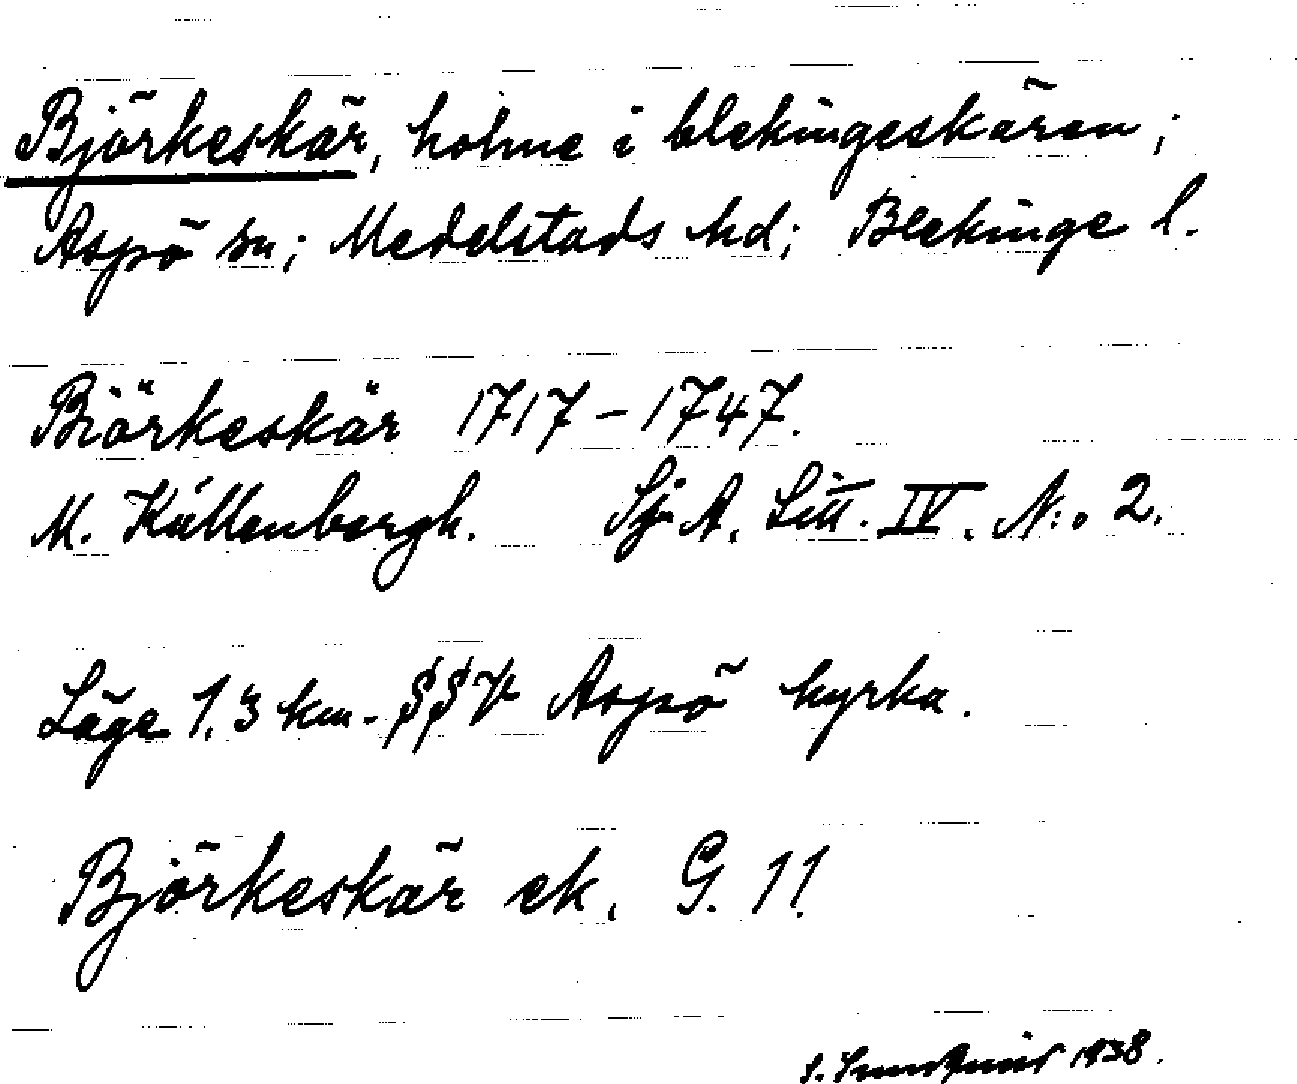 Björkeskär, holme i blekingeskären;
Aspö sn; Medelstads hd; Blekinge l.
Biörkeskär 1717-1747.
M. Källenbergh. Sj. A. Litt. IV. N:o 2.
Läge 1,3 km. SSV Aspö kyrka.
Björkeskär ek. G. 11.
1938.